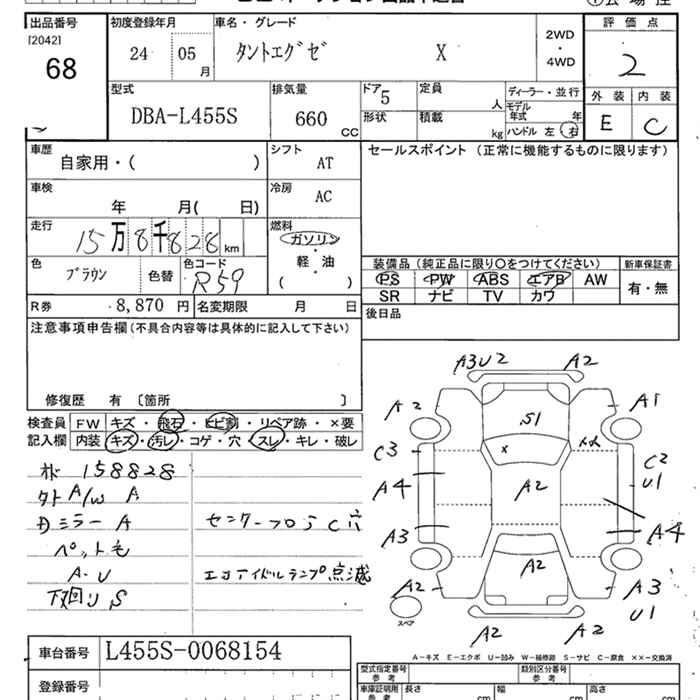 出品番号 初度登録年月 車名・グレード 評価点
[2042]
68 24 05月 タントエグゼ X 2WD・4WD 2
型式 排気量 ドア 5 定員 人 ディーラー・並行 外装 内装
DBA-L455S 660 CC 形状 積載 kg モデル年式 年 E C
ハンドル 左 右
車歴 自家用・( ) シフト AT セールスポイント (正常に機能するものに限ります)
車検 年 月( 日) 冷房 AC
走行 15万8千828 km 燃料 ガソリン・軽・油 ( )
色 ブラウン 色替 色コード R59
装備品 (純正品に限り○をつけてください) 新車保証書
PS PW ABS エアB AW 有・無
SR ナビ TV カワ
R券 8,870 円 名変期限 月 日 後日品
注意事項申告欄(不具合内容等は具体的に記入して下さい)
修復歴 有 〔箇所 〕
検査員 FW キズ・飛石・ヒビ割・リペア跡・×要
記入欄 内装 キズ・汚レ・コゲ・穴・スレ・キレ・破レ
158828
A/W A
ミラー A センターフロ C 穴
ペット毛
A・U エコアイドルランプ点滅
下回り S
A3U2 A2
A2 A1
S1
C3 × C2
U1
A4 A2
A3 A4
A2 A2 A3
U1
スペア
A2 A2
A-キズ E-エクボ U-凹み W-補修跡 S-サビ C-腐食 ××-交換済
車台番号 L455S-0068154
型式指定番号 参考 類別区分番号 参考
登録番号 車庫証明用 参考 長さ cm 幅 cm 高さ cm